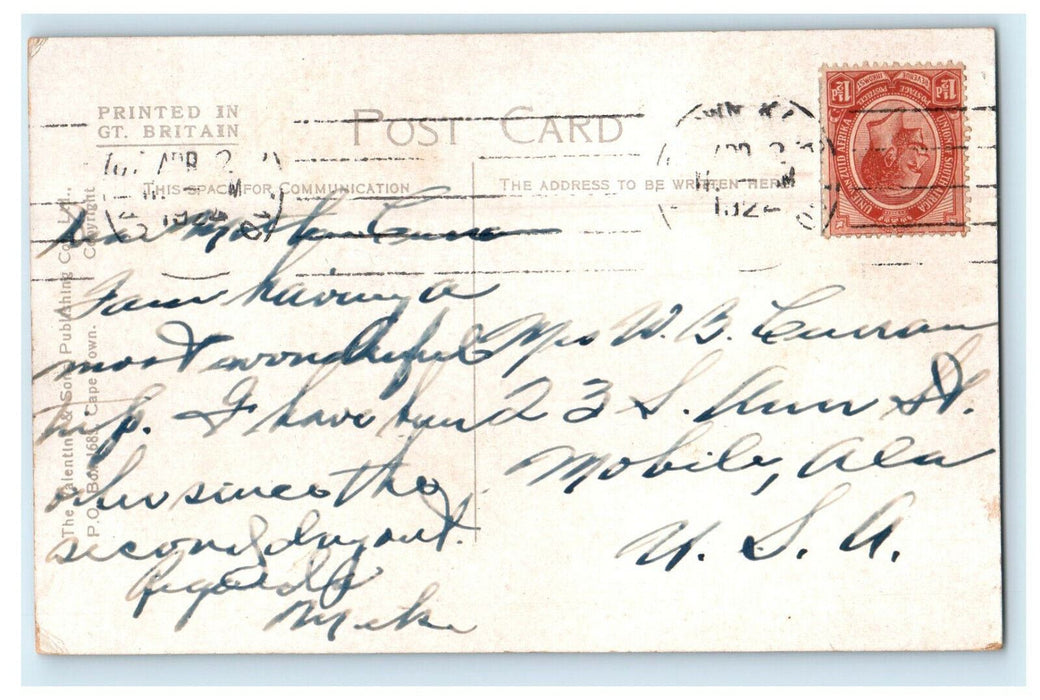 PRINTED IN
GT. BRITAIN
POST CARD
THIS SPACE FOR COMMUNICATION
THE ADDRESS TO BE WRITTEN HERE
APR 2
1922
APR 2
192
1½d POSTAGE REVENUE POSTZEGEL INKOMST 1½d
UNION OF SOUTH AFRICA
UNIE VAN ZUID AFRIKA
The Valentine & Sons Publishing Co., Ltd.,
P.O. Box 1685, Cape Town. Copyright
Dear Curran
I am having a
most wonderful
trip. I have been
since the
second day out.
Regards
Mike
Mrs W. B. Curran
23 S. Ann St.
Mobile, Ala
U. S. A.